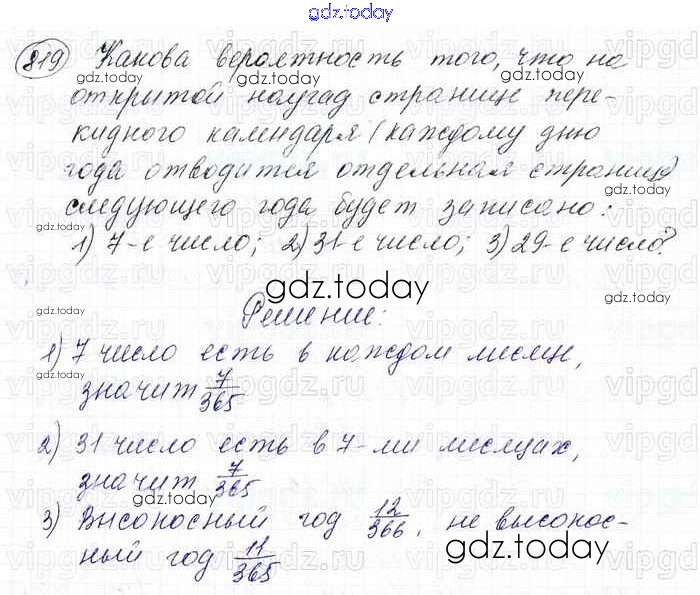 gdz.today
819 Какова вероятность того, что на
открытой наугад странице пере-
кидного календаря (каждому дню
года отводится отдельная страница)
следующего года будет записано:
1) 7-е число; 2) 31-е число; 3) 29-е число?
gdz.today
Решение:
1) 7 число есть в каждом месяце,
значит 7/365
2) 31 число есть в 7-ми месяцах,
значит 7/365
3) Высоносный год 12/366, не высонос-
ный год 11/365
gdz.today